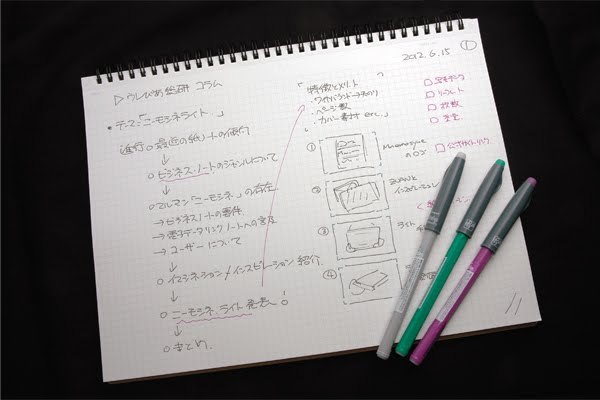 2012.6.15 ①
▷ウレぴあ総研 コラム
・テーマ「ニーモシネライト...」
進行○最近の紙ノートの傾向
↓
○ビジネス・ノートのジャンルについて
↓
○マルマン「ニーモシネ」の存在
→ビジネスノートの要件
→電子データリンクノートへの言及
→ユーザーについて
↓
○イマジネーション/インスピレーション紹介
↓
○ニーモシネ ライト 発表へ
↓
○まとめ
「特徴とメリット
・ワイヤバウンド
・ページ数
・カバー素材 etc.」
□リーフレット
□枚数
□公式サイトリンク
① Mnemosyne のロゴ
② インスピレーション
③ ライト
④